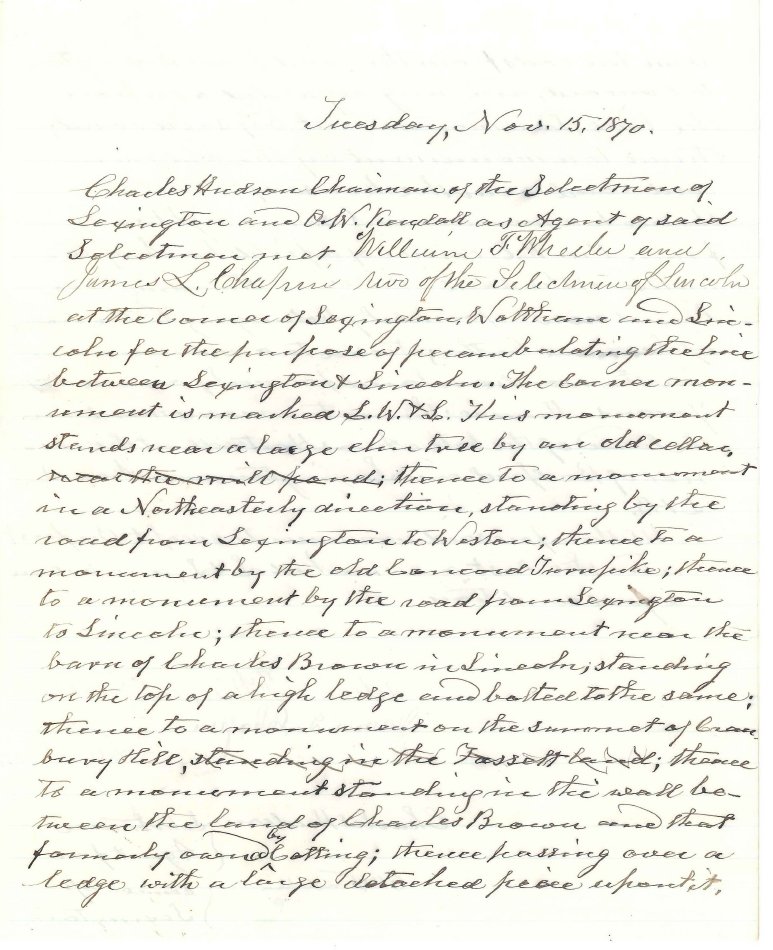 Tuesday, Nov. 15, 1870.
Charles Hudson Chairman of the Selectmen of
Lexington and O. W. Kendall as Agent of said
Selectmen met William F. Wheeler and
James L. Chapin two of the Selectmen of Lincoln
at the Corner of Lexington, Waltham and Lin-
coln for the purpose of perambulating the line
between Lexington & Lincoln. The Corner mon-
ument is marked L. W. & L. This monument
stands near a large elm tree by an old cellar,
near the mill pond; thence to a monument
in a Northeasterly direction, standing by the
road from Lexington to Weston; thence to a
monument by the old Concord Turnpike; thence
to a monument by the road from Lexington
to Lincoln; thence to a monument near the
barn of Charles Brown in Lincoln, standing
on the top of a high ledge and bolted to the same;
thence to a monument on the summet of Cran-
bury Hill, standing in the Fassett land; thence
to a monument standing in the wall be-
tween the land of Charles Brown and that
formerly owned by Cotting; thence passing over a
ledge with a large detached peice upon it,